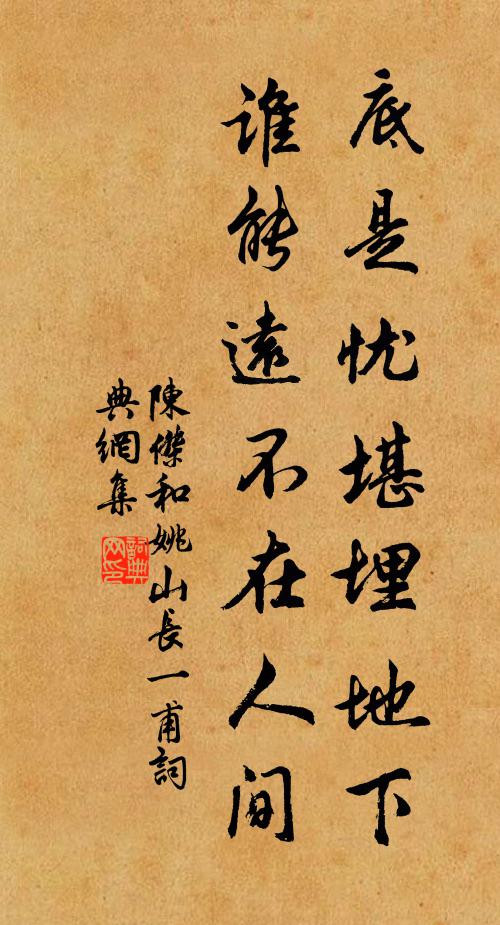 底是忧堪埋地下
谁能遠不在人间
陳傑和姚山長一甫詞
典網集
詞典
网印